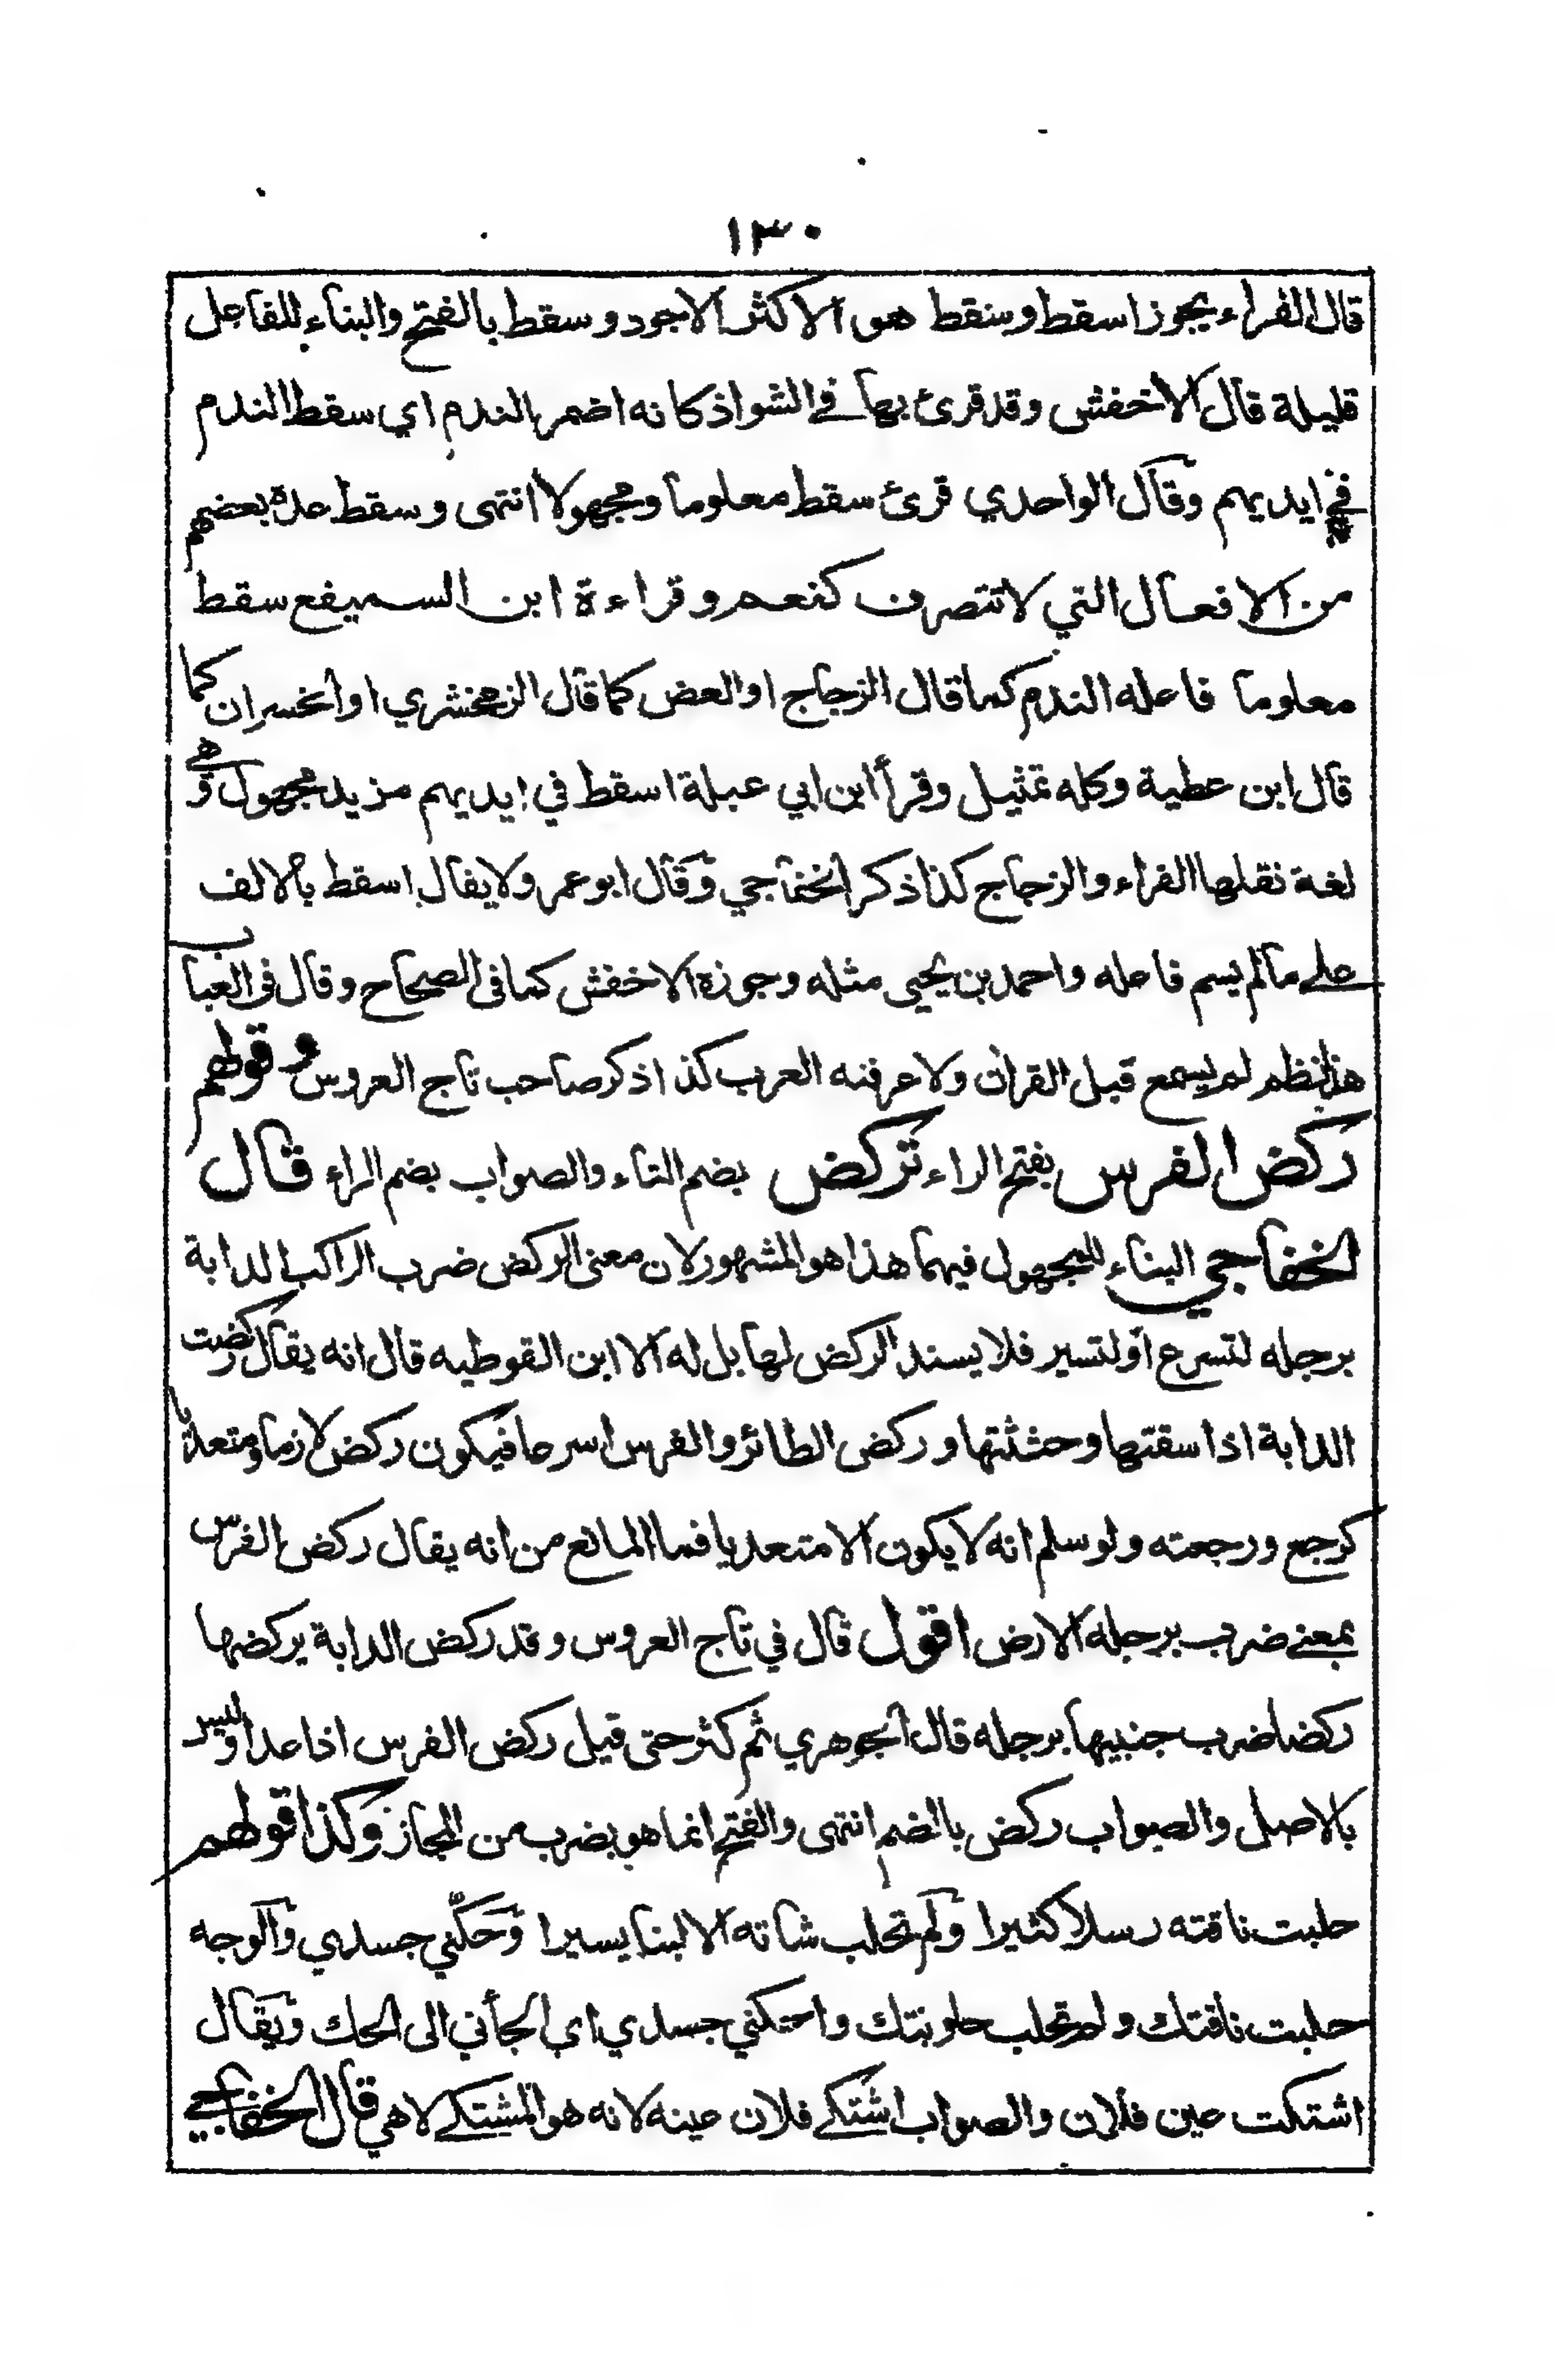 ١٣٠
قال الفراء يجوز اسقط وسقط هو الاكثر الاجود وسقط بالفتح والبناء للفاعل
قليلة قال الاخفش وقد قرئ بها في الشواذ كانه اضمر الندم اي سقط الندم
في ايديهم وقال الواحدي قرئ سقط معلوما ومجهولا انتهى وسقط عدة بعضهم
من الافعال التي لا تتصرف كنعم وقراءة ابن السميفع سقط
معلوما فاعله الندم كما قال الزجاج او العض كما قال الزمخشري او الخسران كما
قال ابن عطية وكله تمثيل وقرأ ابن ابي عبلة اسقط في ايديهم مزيد مجهول وهي
لغة نقلها الفراء والزجاج كذا ذكر الخفاجي وقال ابو عمر ولا يقال اسقط بالالف
على ما لم يسم فاعله واحمد بن يحيى مثله وجوزه الاخفش كما فى الصحاح وقال فى العباب
هذا نظم لم يسمع قبل القرآن ولا عرفته العرب كذا ذكر صاحب تاج العروس وقولهم
ركض الفرس بفتح الراء تركض بضم التاء والصواب بضم الراء قال
الخفاجي البناء للمجهول فيهما هذا هو المشهور لان معنى الركض ضرب الراكب الدابة
برجله لتسرع او لتسير فلا يسند الركض لها بل له الا ابن القوطيه قال انه يقال ركضت
الدابة اذا سقتها وحثثتها وركض الطائر والفرس اسرعا فيكون ركض لازما ومتعديا
كرجع ورجعته ولو سلم انه لا يكون الا متعديا فما المانع من انه يقال ركض الفرس
بمعنى ضرب برجله الارض اقول قال في تاج العروس وقد ركض الدابة يركضها
ركضا ضرب جنبيها برجله قال الجوهري ثم كثر حتى قيل ركض الفرس اذا عدا وليس
بالاصل والصواب ركض بالضم انتهى والفتح انما هو بضرب من المجاز وكذا قولهم
حلبت ناقته رسلا كثيرا ولم تحلب شاته الا لبنا يسيرا وحكّني جسدي والوجه
حلبت ناقتك ولم تحلب حلوبتك واحتكني جسدي اي الجأني الى الحك ويقال
اشتكت عين فلان والصواب اشتكى فلان عينه لانه هو المشتكي لا هي قال الخفاجي